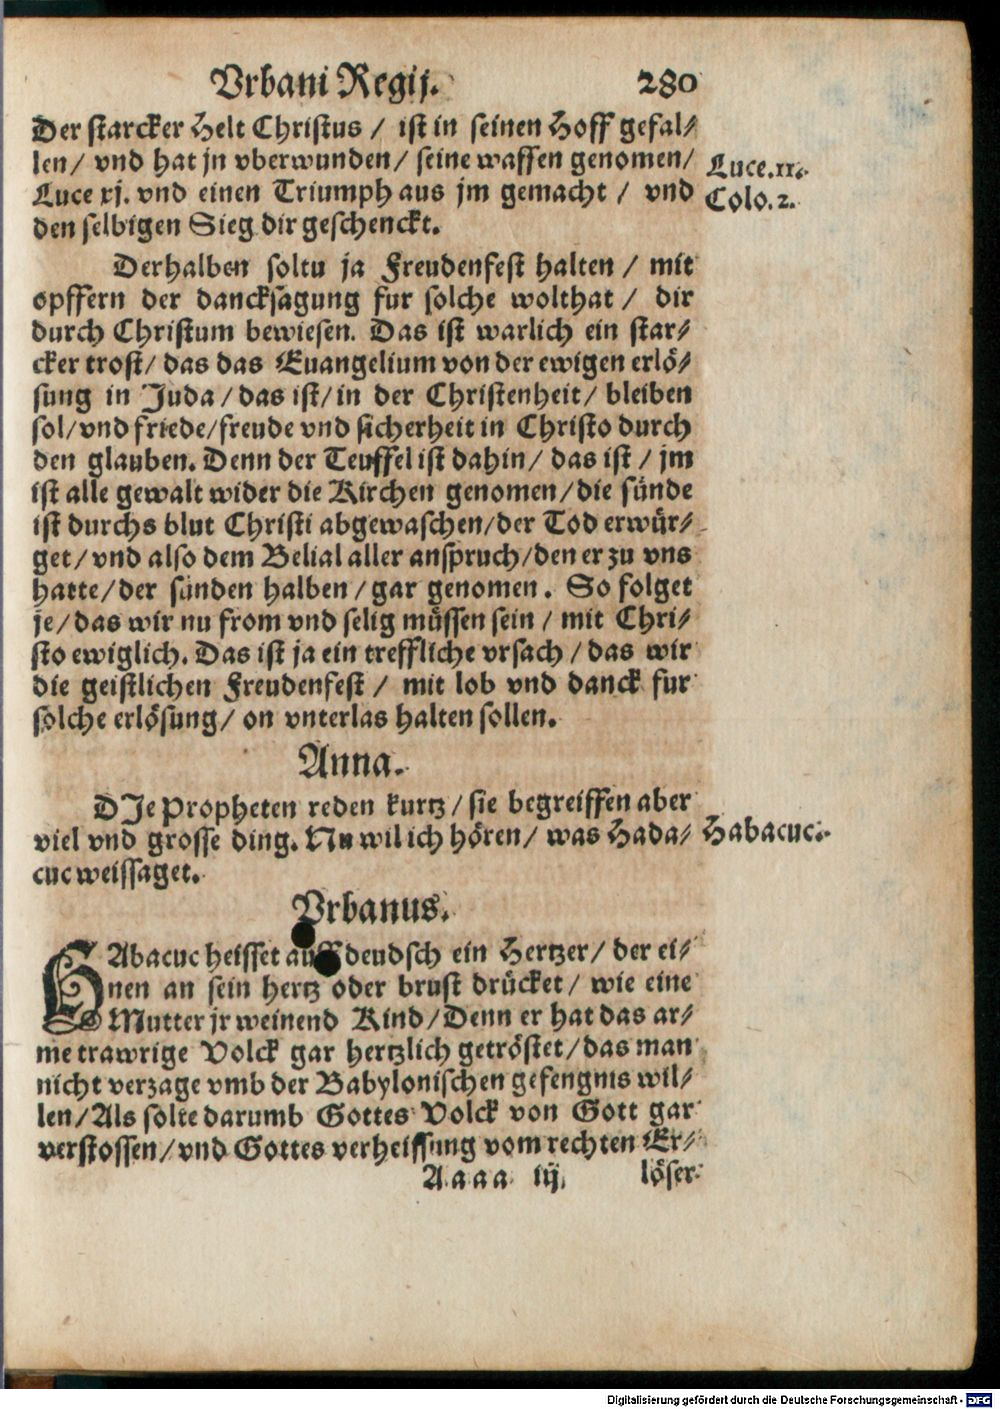 Vrbani Regij. 280
Der starcker Helt Christus / ist in seinen Hoff gefal⸗
len / vnd hat jn vberwunden / seine waffen genomen / Luce. 11.
Luce xj. vnd einen Triumph aus jm gemacht / vnd Colo. 2.
den selbigen Sieg dir geschenckt.
Derhalben soltu ja Freudenfest halten / mit
opffern der dancksagung fur solche wolthat / dir
durch Christum bewiesen. Das ist warlich ein star⸗
cker trost / das das Euangelium von der ewigen erlö⸗
sung in Juda / das ist / in der Christenheit / bleiben
sol / vnd friede / freude vnd sicherheit in Christo durch
den glauben. Denn der Teuffel ist dahin / das ist / jm
ist alle gewalt wider die Kirchen genomen / die sünde
ist durchs blut Christi abgewaschen / der Tod erwür⸗
get / vnd also dem Belial aller anspruch / den er zu vns
hatte / der sünden halben / gar genomen. So folget
je / das wir nu from vnd selig müssen sein / mit Chri⸗
sto ewiglich. Das ist ja ein treffliche vrsach / das wir
die geistlichen Freudenfest / mit lob vnd danck fur
solche erlösung / on vnterlas halten sollen.
Anna.
DJe Propheten reden kurtz / sie begreiffen aber
viel vnd grosse ding. Nu wil ich hören / was Haba⸗ Habacuc.
cuc weissaget.
Vrbanus.
HAbacuc heisset auff deudsch ein Hertzer / der ei⸗
nen an sein hertz oder brust drücket / wie eine
Mutter jr weinend Kind / Denn er hat das ar⸗
me trawrige Volck gar hertzlich getröstet / das man
nicht verzage vmb der Babylonischen gefengnis wil⸗
len / Als solte darumb Gottes Volck von Gott gar
verstossen / vnd Gottes verheissung vom rechten Er⸗
Aaaa iij. löser
Digitalisierung gefördert durch die Deutsche Forschungsgemeinschaft - DFG